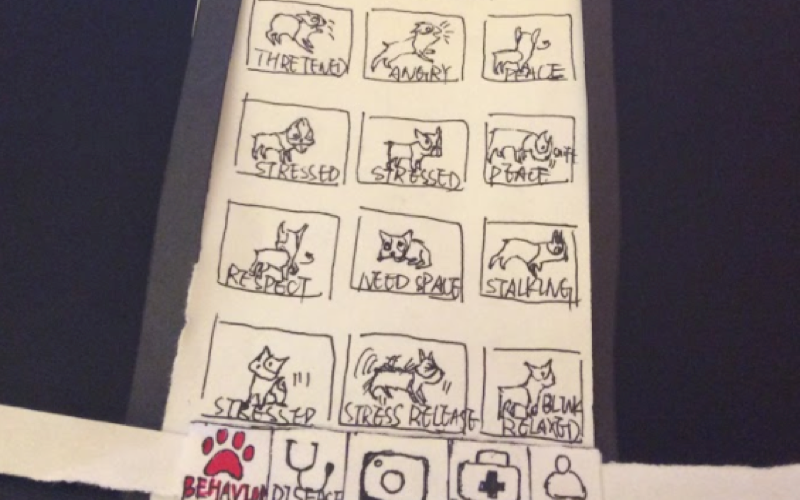 THRETENED ANGRY PEACE
STRESSED STRESSED PEACE
RESPECT NEED SPACE STALKING
STRESSED STRESS RELEASE BLINK
RELAXED
BEHAVIOR DISEASE